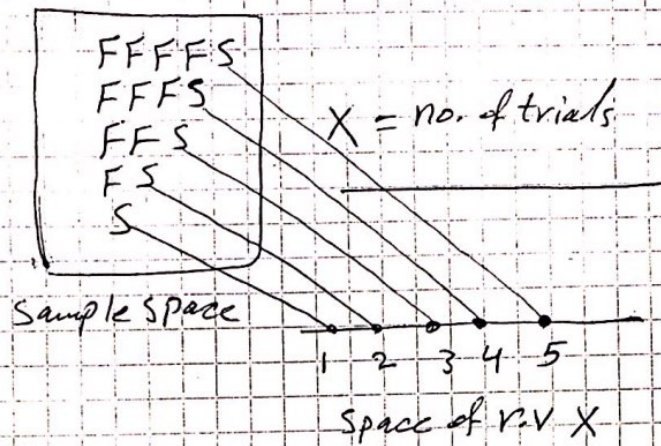 FFFFS
FFFS
FFS
FS
S
X = no. of trials
Sample space
1 2 3 4 5
Space of r.v X